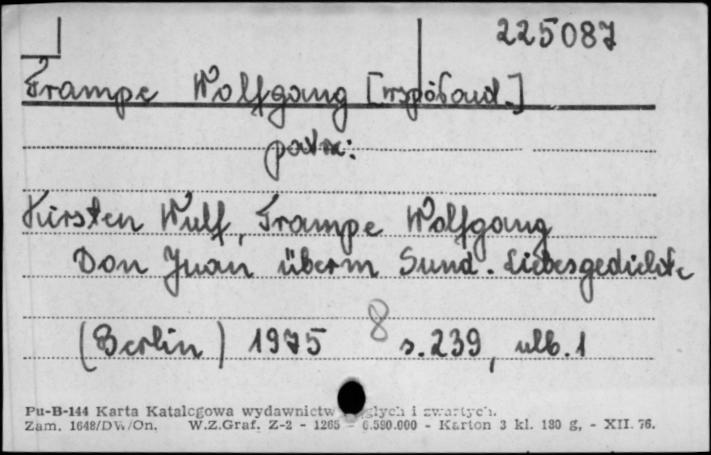 225087
Trampe Wolfgang [współaut.]
patrz:
Kirsten Wulf, Trampe Wolfgang
Don Juan überm Sund. Liebesgedichte
(Berlin) 1975 8 s. 239, ulb. 1
Pu-B-144 Karta Katalogowa wydawnictw ciągłych i zwartych.
Zam. 1648/DW/On. W.Z.Graf. Z-2 - 1265 - 6.590.000 - Karton 3 kl. 180 g, - XII. 76.